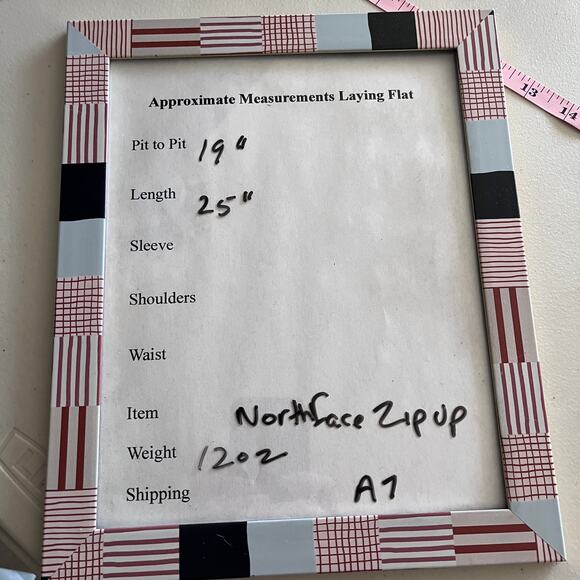 Approximate Measurements Laying Flat
Pit to Pit 19"
Length 25"
Sleeve
Shoulders
Waist
Item Northface Zip up
Weight 12oz
Shipping A7
13 14